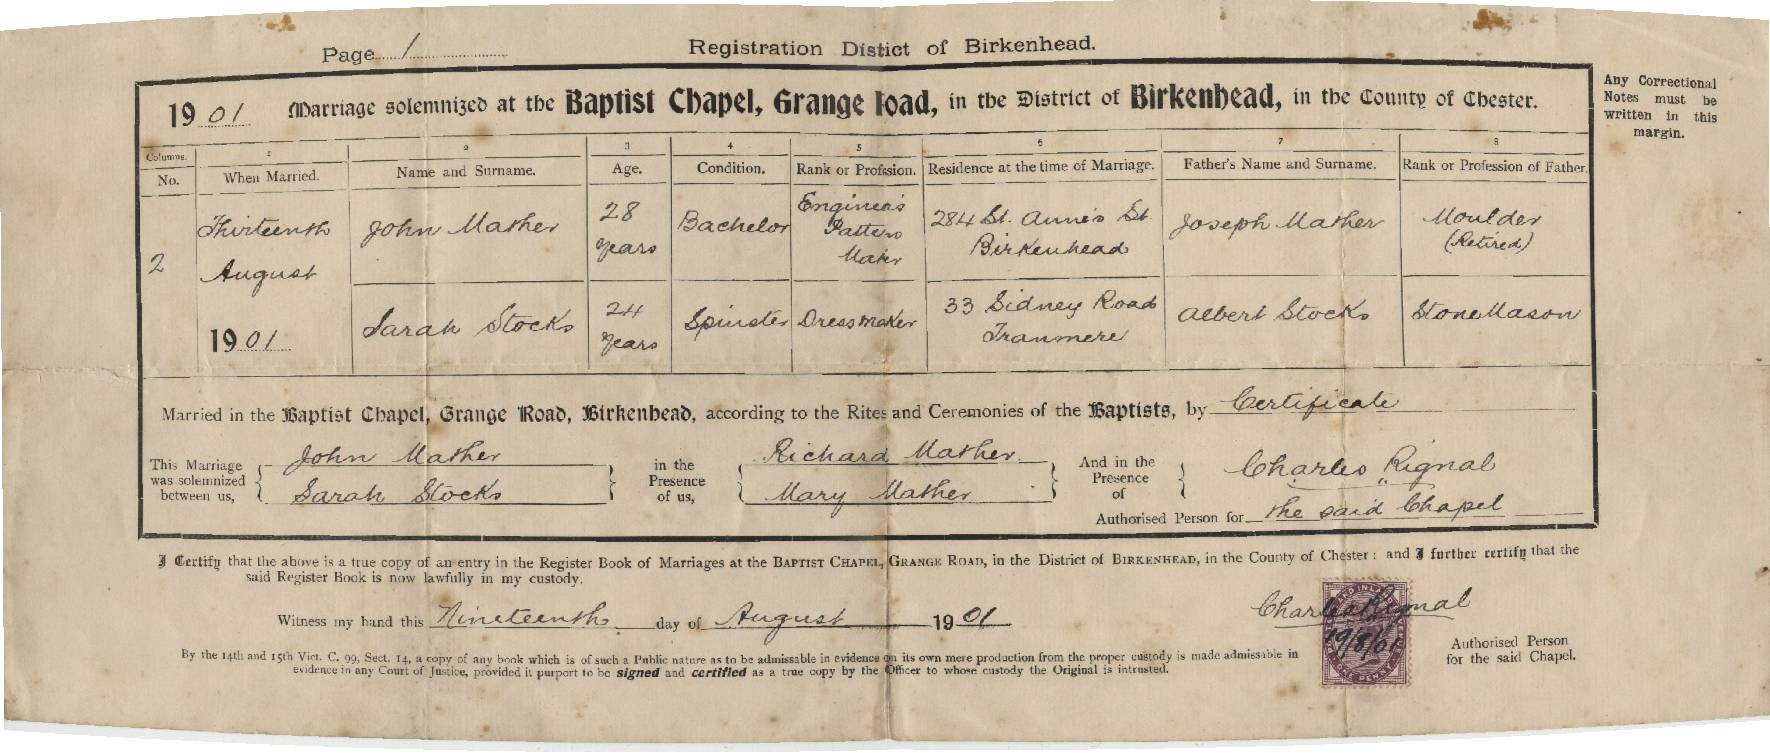 Page 1
Registration Distict of Birkenhead.
Any Correctional
Notes must be
written in this
margin.
1901 Marriage solemnized at the Baptist Chapel, Grange Road, in the District of Birkenhead, in the County of Chester.
Columns. 1 2 3 4 5 6 7 8
No. When Married. Name and Surname. Age. Condition. Rank or Profession. Residence at the time of Marriage. Father's Name and Surname. Rank or Profession of Father.
2
Thirteenth
August
1901
John Mather
28
years
Bachelor
Engineer's
Pattern
Maker
284 St. Anne's St.
Birkenhead
Joseph Mather
Moulder
(Retired)
Sarah Stocks
24
years
Spinster
Dressmaker
33 Sidney Road
Tranmere
Albert Stocks
Stone Mason
Married in the Baptist Chapel, Grange Road, Birkenhead, according to the Rites and Ceremonies of the Baptists, by Certificate
This Marriage
was solemnized
between us,
John Mather
Sarah Stocks
in the
Presence
of us,
Richard Mather
Mary Mather
And in the
Presence
of
Charles Rignal
Authorised Person for the said Chapel
I Certify that the above is a true copy of an entry in the Register Book of Marriages at the BAPTIST CHAPEL, GRANGE ROAD, in the District of BIRKENHEAD, in the County of Chester: and I further certify that the
said Register Book is now lawfully in my custody.
Witness my hand this Nineteenth day of August 1901
Charles Rignal
19/8/01
Authorised Person
for the said Chapel.
By the 14th and 15th Vict. C. 99, Sect. 14, a copy of any book which is of such a Public nature as to be admissable in evidence on its own mere production from the proper custody is made admissable in
evidence in any Court of Justice, provided it purport to be signed and certified as a true copy by the Officer to whose custody the Original is intrusted.